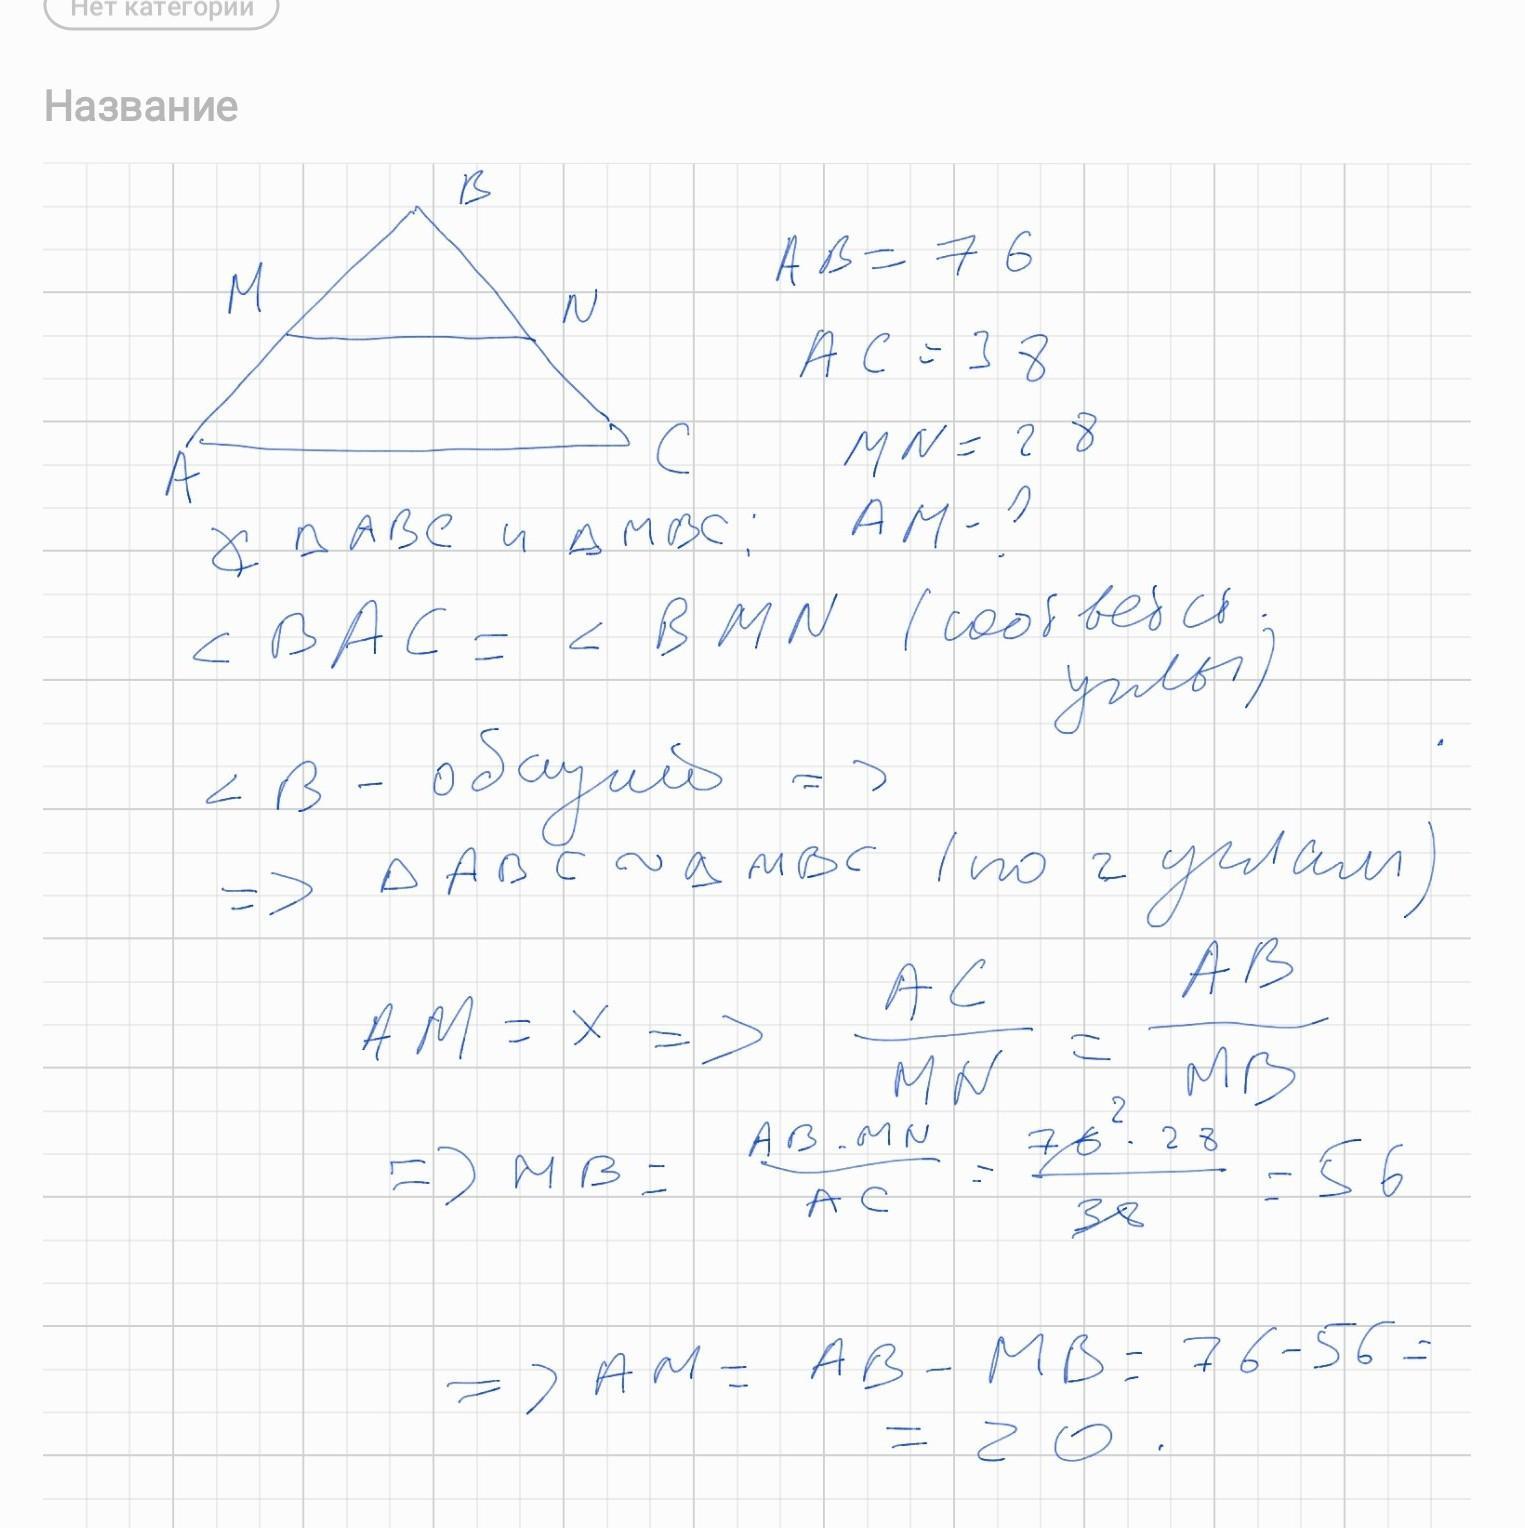 Нет категории
Название
B
M
N
A
C
AB = 76
AC = 38
MN = 28
AM - ?
∆ ABC и ∆ MBC:
< BAC = < BMN (соответст.
углы)
< B - общий =>
=> ∆ ABC ~ ∆ MBC (по 2 углам)
AM = x => AC/MN = AB/MB
=> MB = AB · MN / AC = 76² · 28 / 38 = 56
=> AM = AB - MB = 76 - 56 =
= 20 .